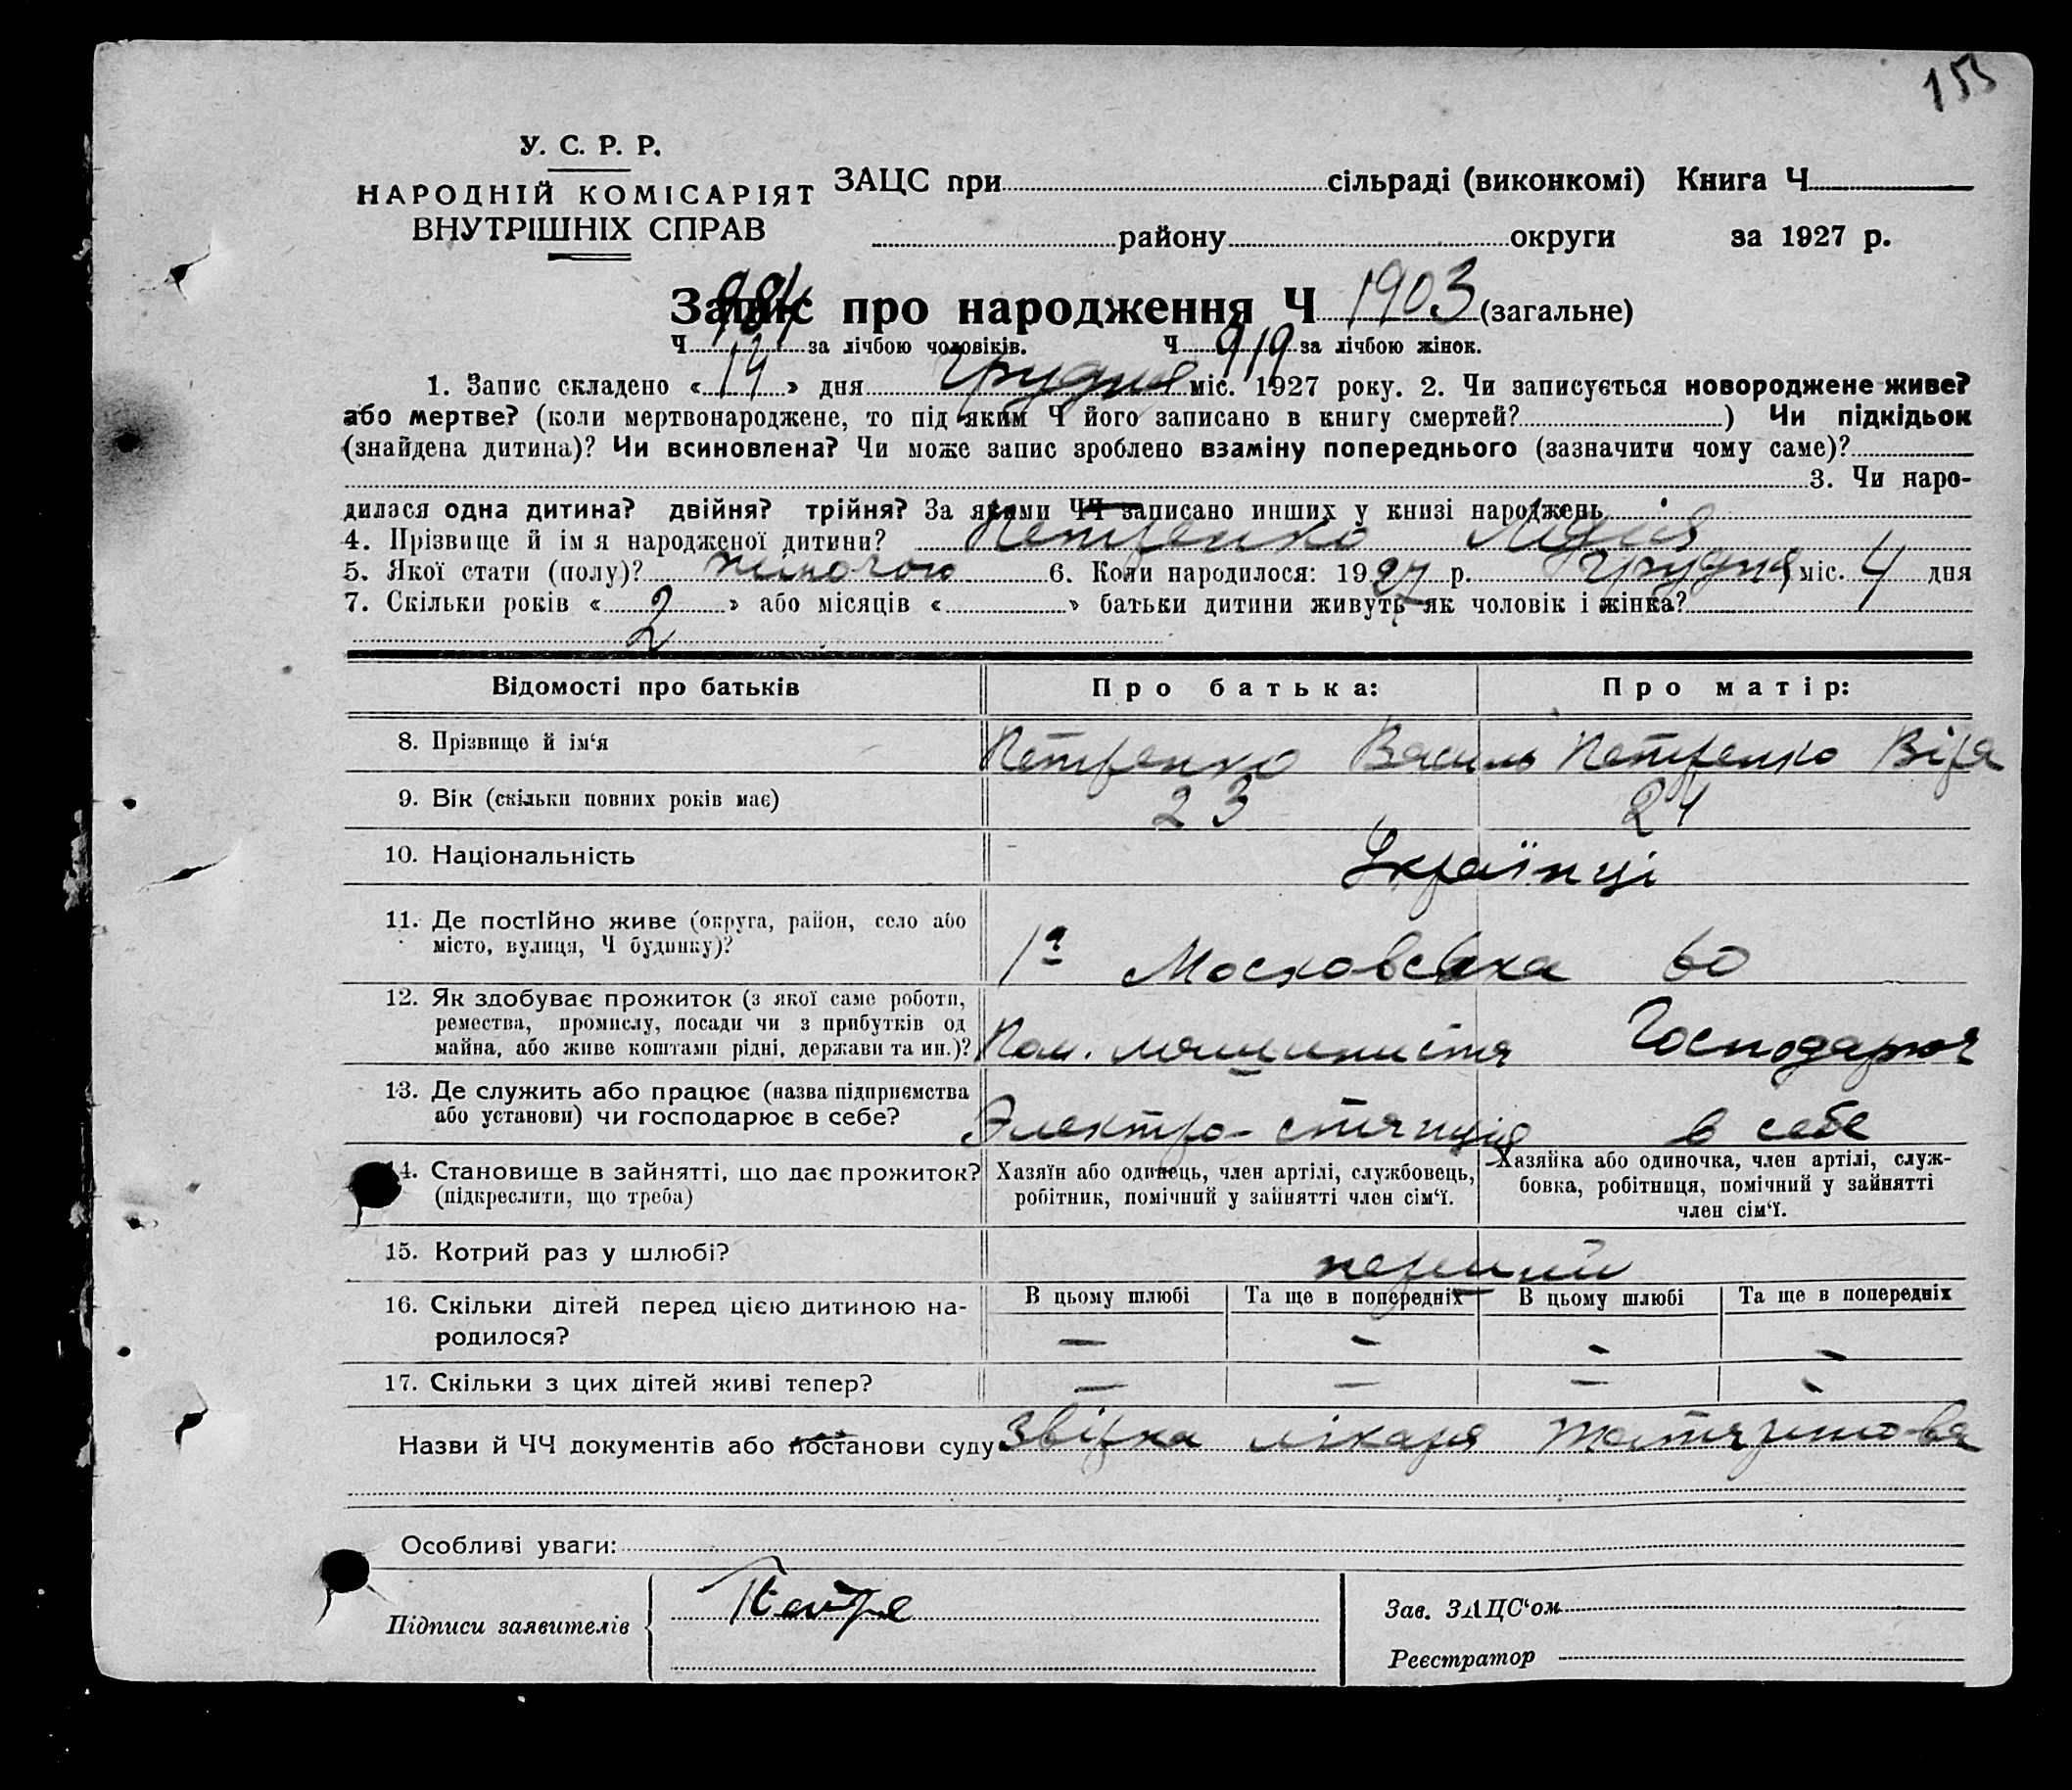 153
У. С. Р. Р.
НАРОДНІЙ КОМІСАРІЯТ
ВНУТРІШНІХ СПРАВ
ЗАЦС при сільраді (виконкомі) Книга Ч
району округи за 1927 р.
Запис про народження Ч 1903 (загальне)
Ч 984 за лічбою чоловіків. Ч 919 за лічбою жінок.
1. Запис складено « 14 » дня грудня міс. 1927 року. 2. Чи записується новороджене живе?
або мертве? (коли мертвонароджене, то під яким Ч його записано в книгу смертей? ) Чи підкідьок
(знайдена дитина)? Чи всиновлена? Чи може запис зроблено взаміну попереднього (зазначити чому саме)?
3. Чи наро-
дилася одна дитина? двійня? трійня? За якими ЧЧ записано инших у книзі народжень
4. Прізвище й ім я народженої дитини? Петренко Лідія
5. Якої стати (полу)? жиночою 6. Коли народилося: 1927 р. грудня міс. 4 дня
7. Скільки років « 2 » або місяців « » батьки дитини живуть як чоловік і жінка?
2
Відомості про батьків Про батька: Про матір:
8. Прізвище й ім‘я Петренко Василь Петренко Віра
9. Вік (скільки повних років має) 23 24
10. Національність Українці
11. Де постійно живе (округа, район, село або
місто, вулиця, Ч будинку)? 1а Московська 60
12. Як здобуває прожиток (з якої саме роботи,
ремества, промислу, посади чи з прибутків од
майна, або живе коштами рідні, держави та ин.)? Пом. машиниста Господарює
13. Де служить або працює (назва підприємства
або установи) чи господарює в себе? Электро-станція в себе
14. Становище в зайнятті, що дає прожиток?
(підкреслити, що треба)
Хазяїн або одинець, член артілі, службовець,
робітник, помічний у зайнятті член сім‘ї.
Хазяйка або одиночка, член артілі, служ-
бовка, робітниця, помічний у зайнятті
член сім‘ї.
15. Котрий раз у шлюбі? перший
16. Скільки дітей перед цією дитиною на-
родилося?
В цьому шлюбі Та ще в попередніх В цьому шлюбі Та ще в попередніх
— - - -
17. Скільки з цих дітей живі тепер? — — - -
Назви й ЧЧ документів або постанови суду Звірка лікаря
Особливі уваги:
Підписи заявителів
Зав. ЗАЦС‘ом
Реєстратор